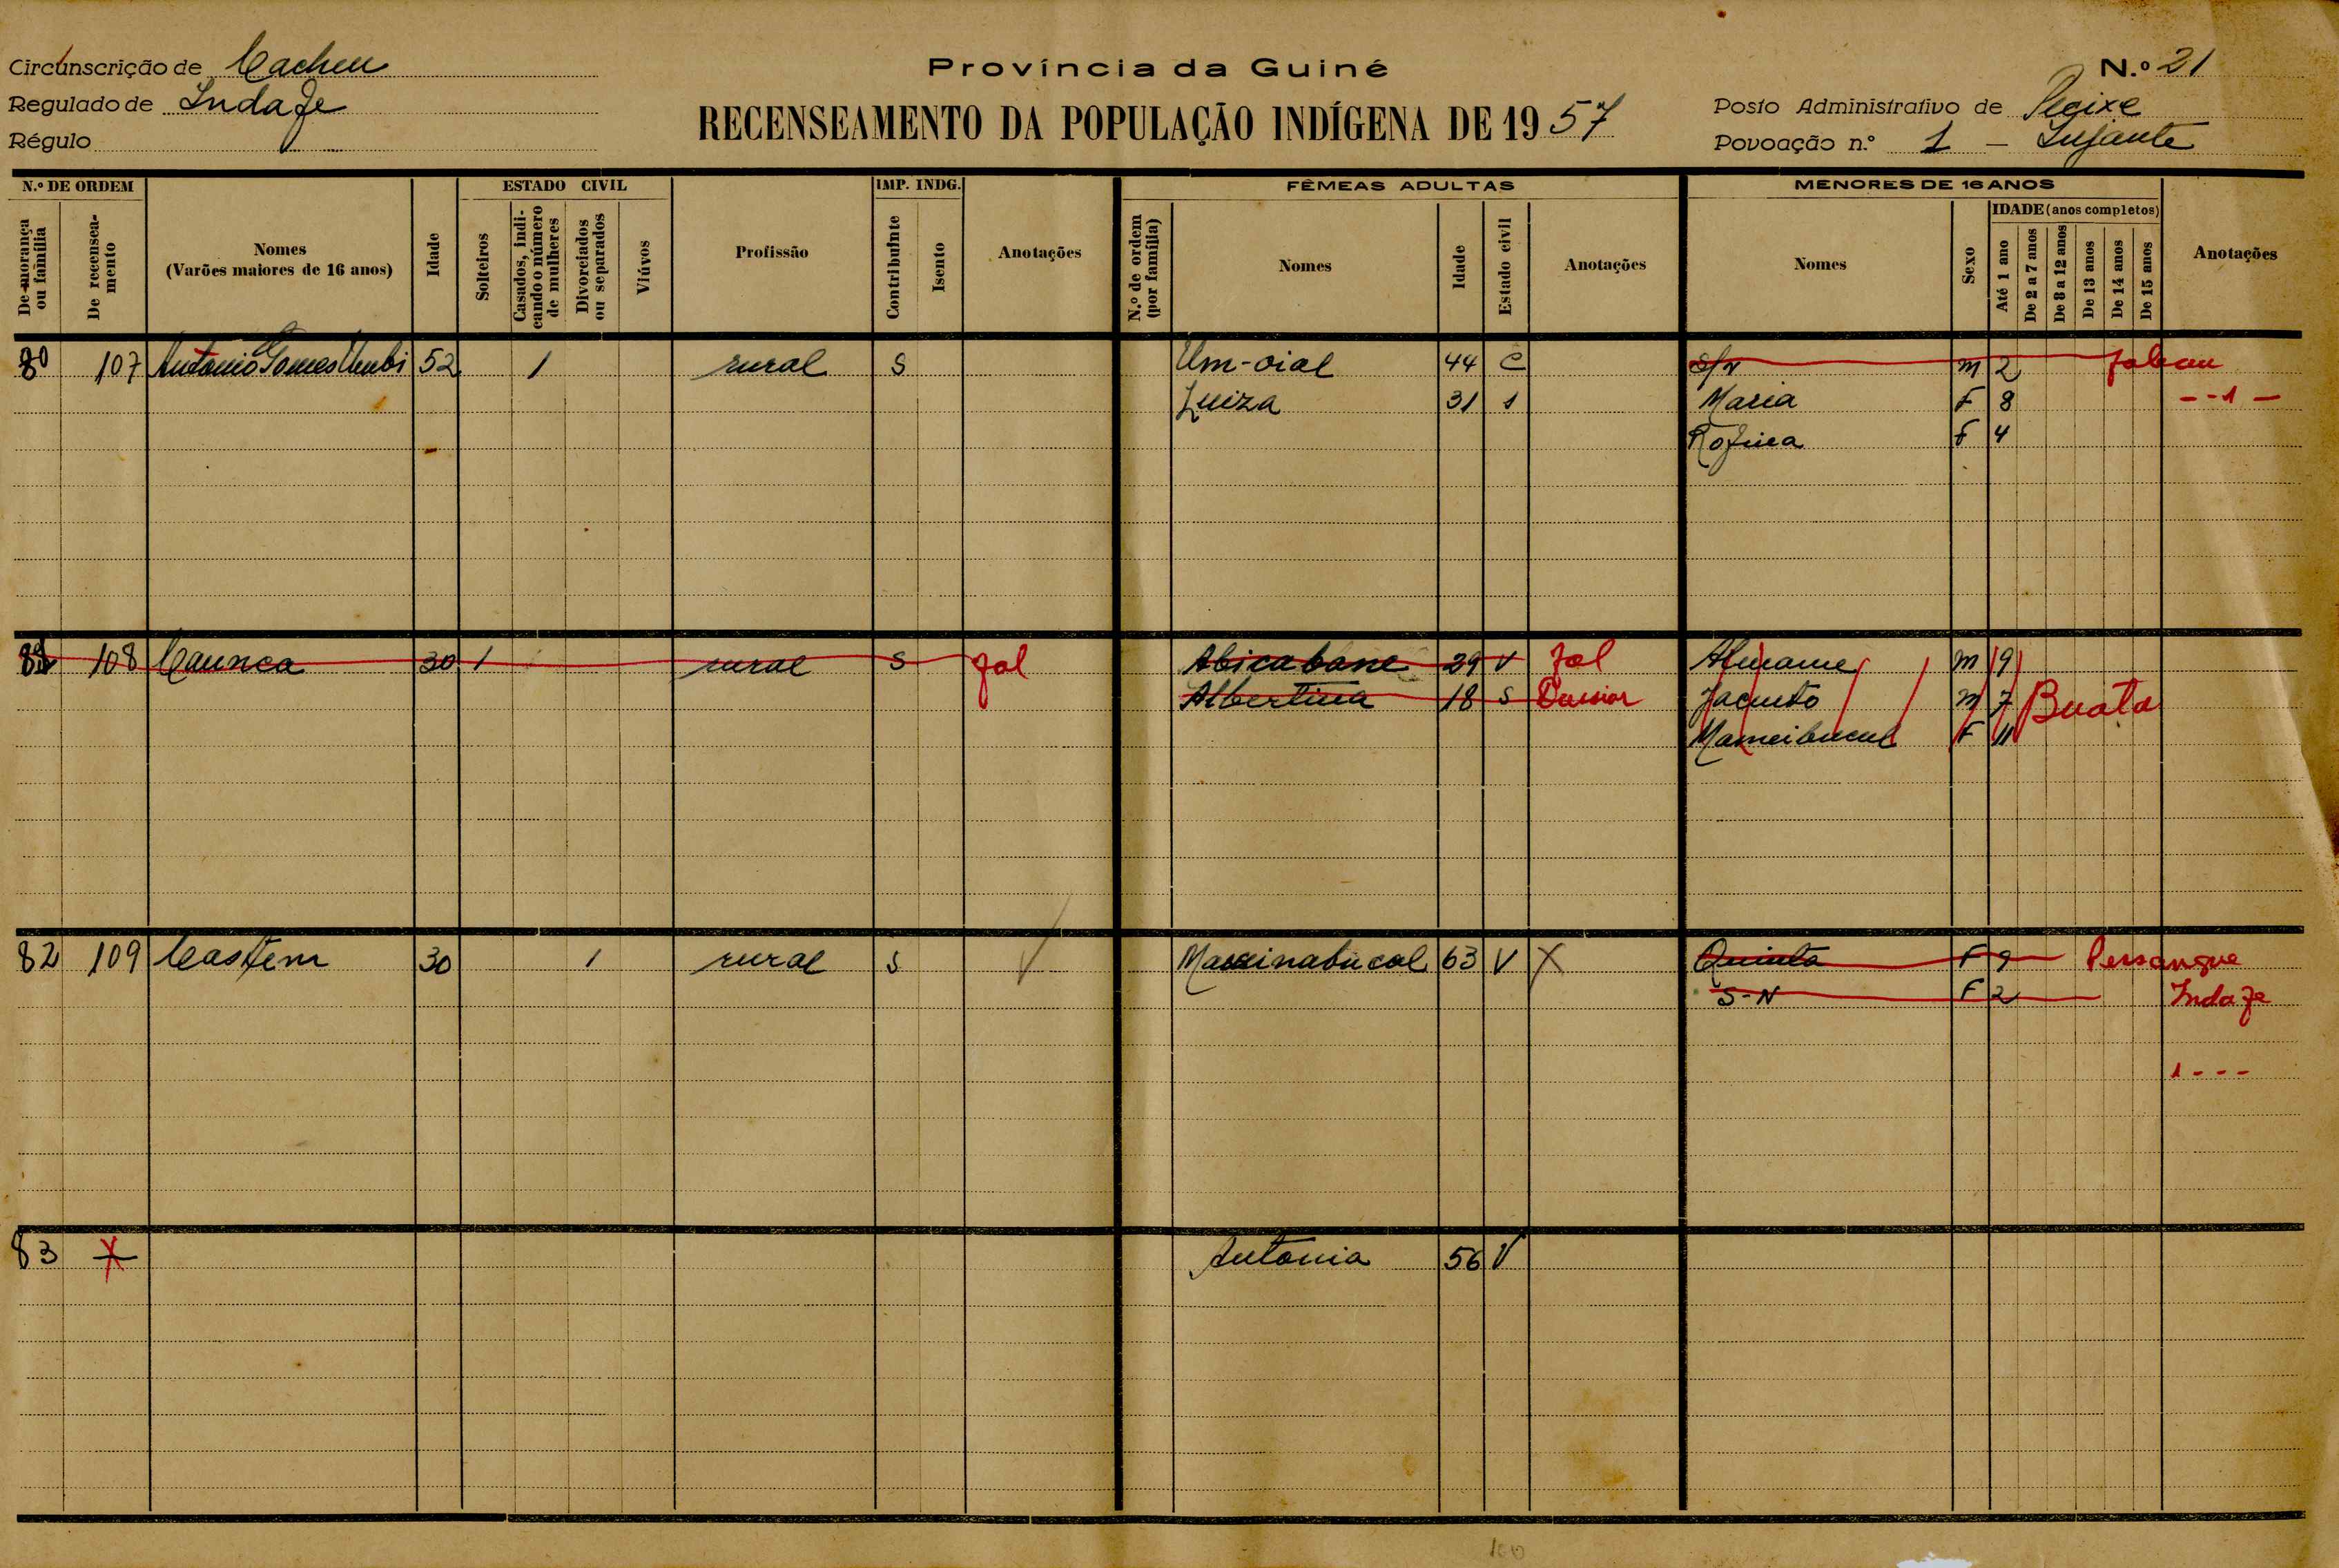 Circunscrição de Cacheu
Regulado de IndaFe
Régulo
Província da Guiné
RECENSEAMENTO DA POPULAÇÃO INDÍGENA DE 1957
N.º 21
Posto Administrativo de Peixe
Povoação n.º 1 -
N.º DE ORDEM
De morança ou família
De recenseamento
Nomes
(Varões maiores de 16 anos)
Idade
ESTADO CIVIL
Solteiros
Casados, indicando o número de mulheres
Divorciados ou separados
Viúvos
Profissão
IMP. INDG.
Contribuinte
Isento
Anotações
FÊMEAS ADULTAS
N.º de ordem (por família)
Nomes
Idade
Estado civil
Anotações
MENORES DE 16 ANOS
Nomes
Sexo
IDADE (anos completos)
Até 1 ano
De 2 a 7 anos
De 8 a 12 anos
De 13 anos
De 14 anos
De 15 anos
Anotações
80 107 Antonio Gomes 52 1 rural S Um-oial 44 C S/N M 2
Luiza 31 s Maria F 8 - - 1 -
Rofina F 4
108 Caunca 30 1 rural S Jol Abicabane 29 V Jol M 9
Albertina 18 S Jacinto M 7 Buota
F 11
82 109 Castem 30 1 rural S 63 V X Quinta F 9 Persangue
S-N F 2 IndaFe
1 - - -
83 X Antonia 56 V
100